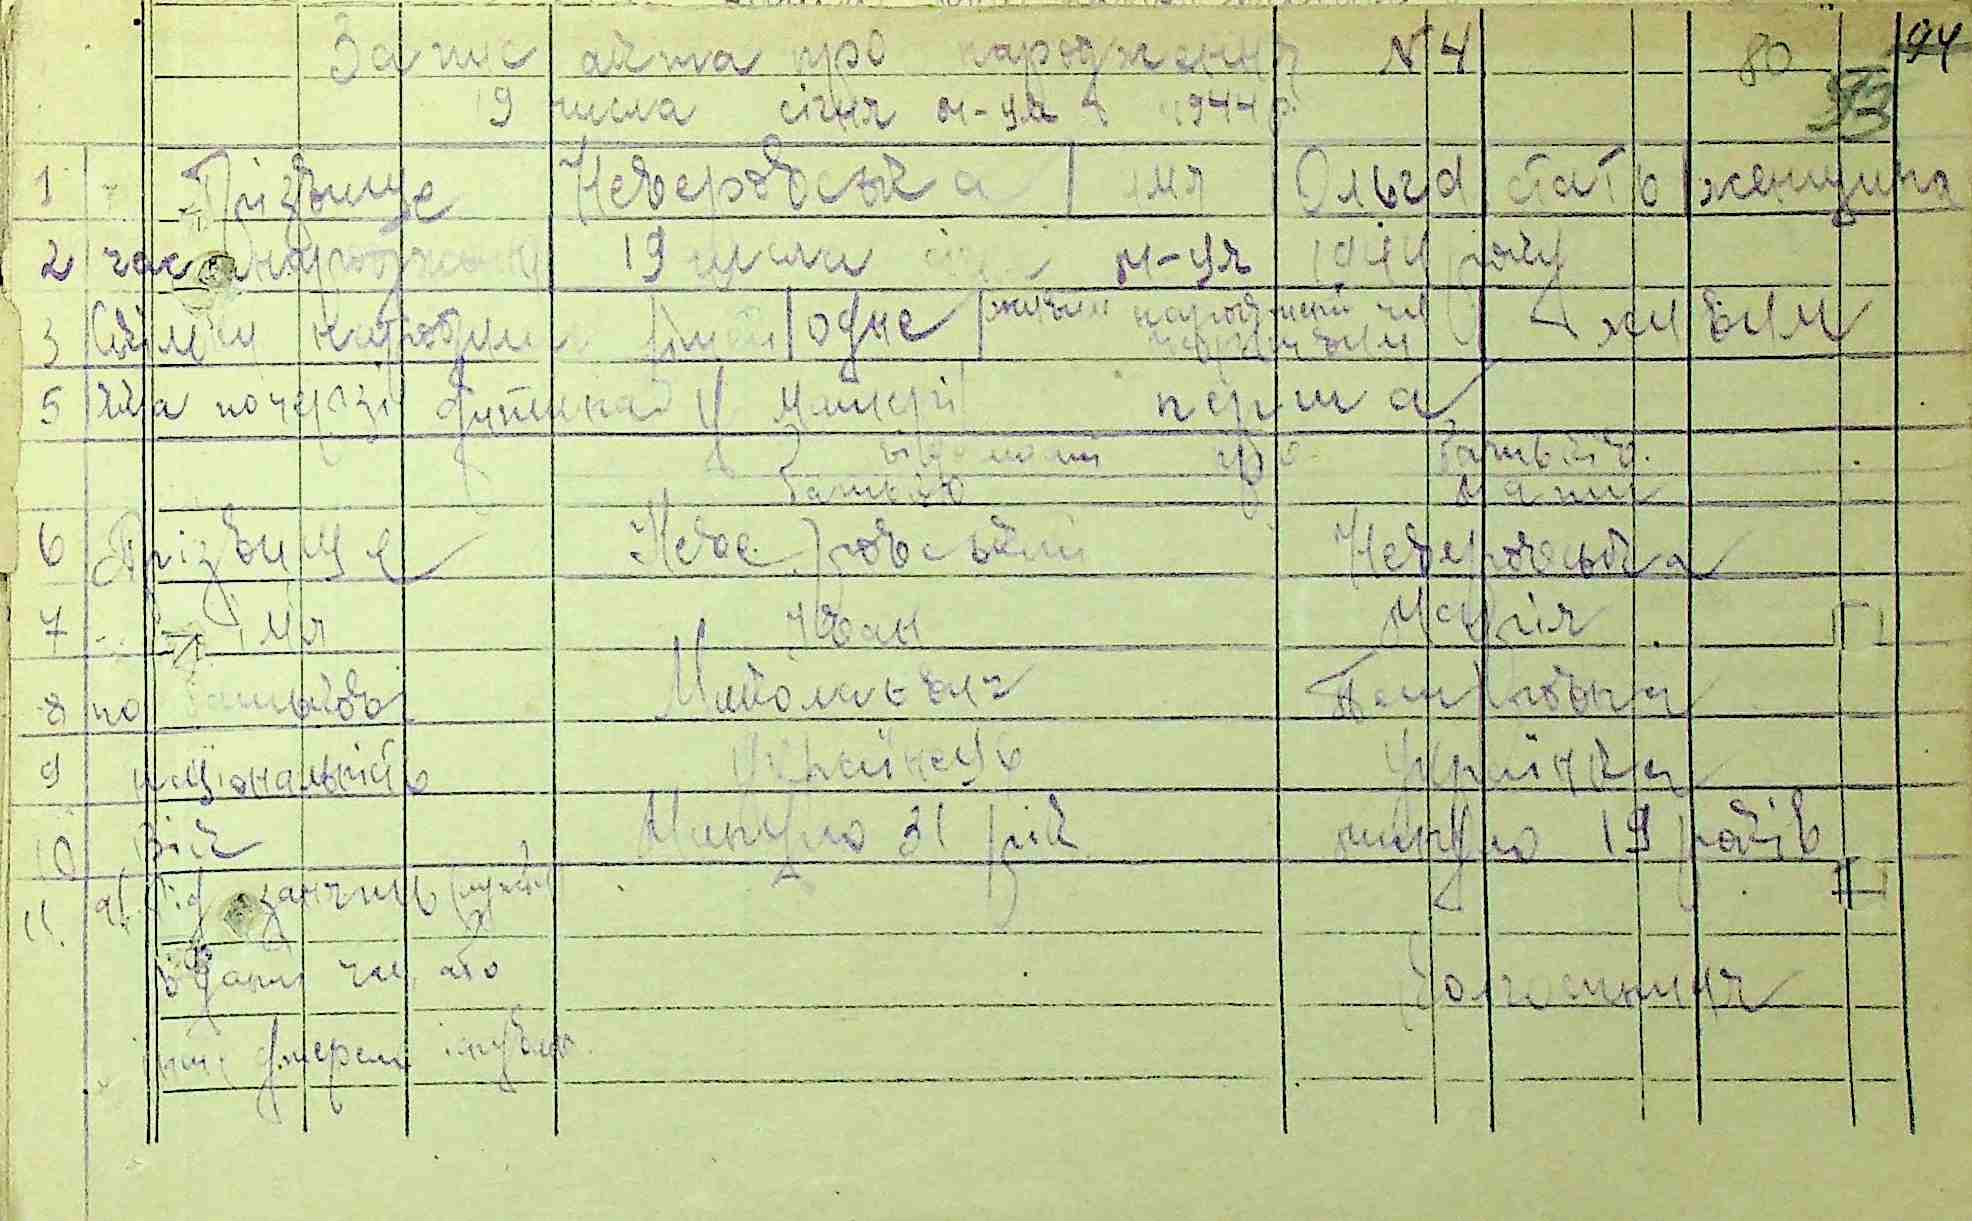 Запис акта про народження N 4 80 94
93
19 числа січня м-ця 1944 р.
1 Прізвище Неверовська імя Ольга стать женщина
2 час народження 19 числа січ. м-ця 1944 року
3 Скільки народилос дітей одне живим народжений чи живим
5 Яка по черзі дитина у матері перша
Відомості про батьків.
батько мати
6 Прізвище Неверовський Неверовська
7 імя Іван Марія
8 по батькові Микольович Петровна
9 національність Українець Українка
10 Вік Минуло 31 рік минуло 19 років
11. а/ Рід занять
або колгоспниця
джерело існував.